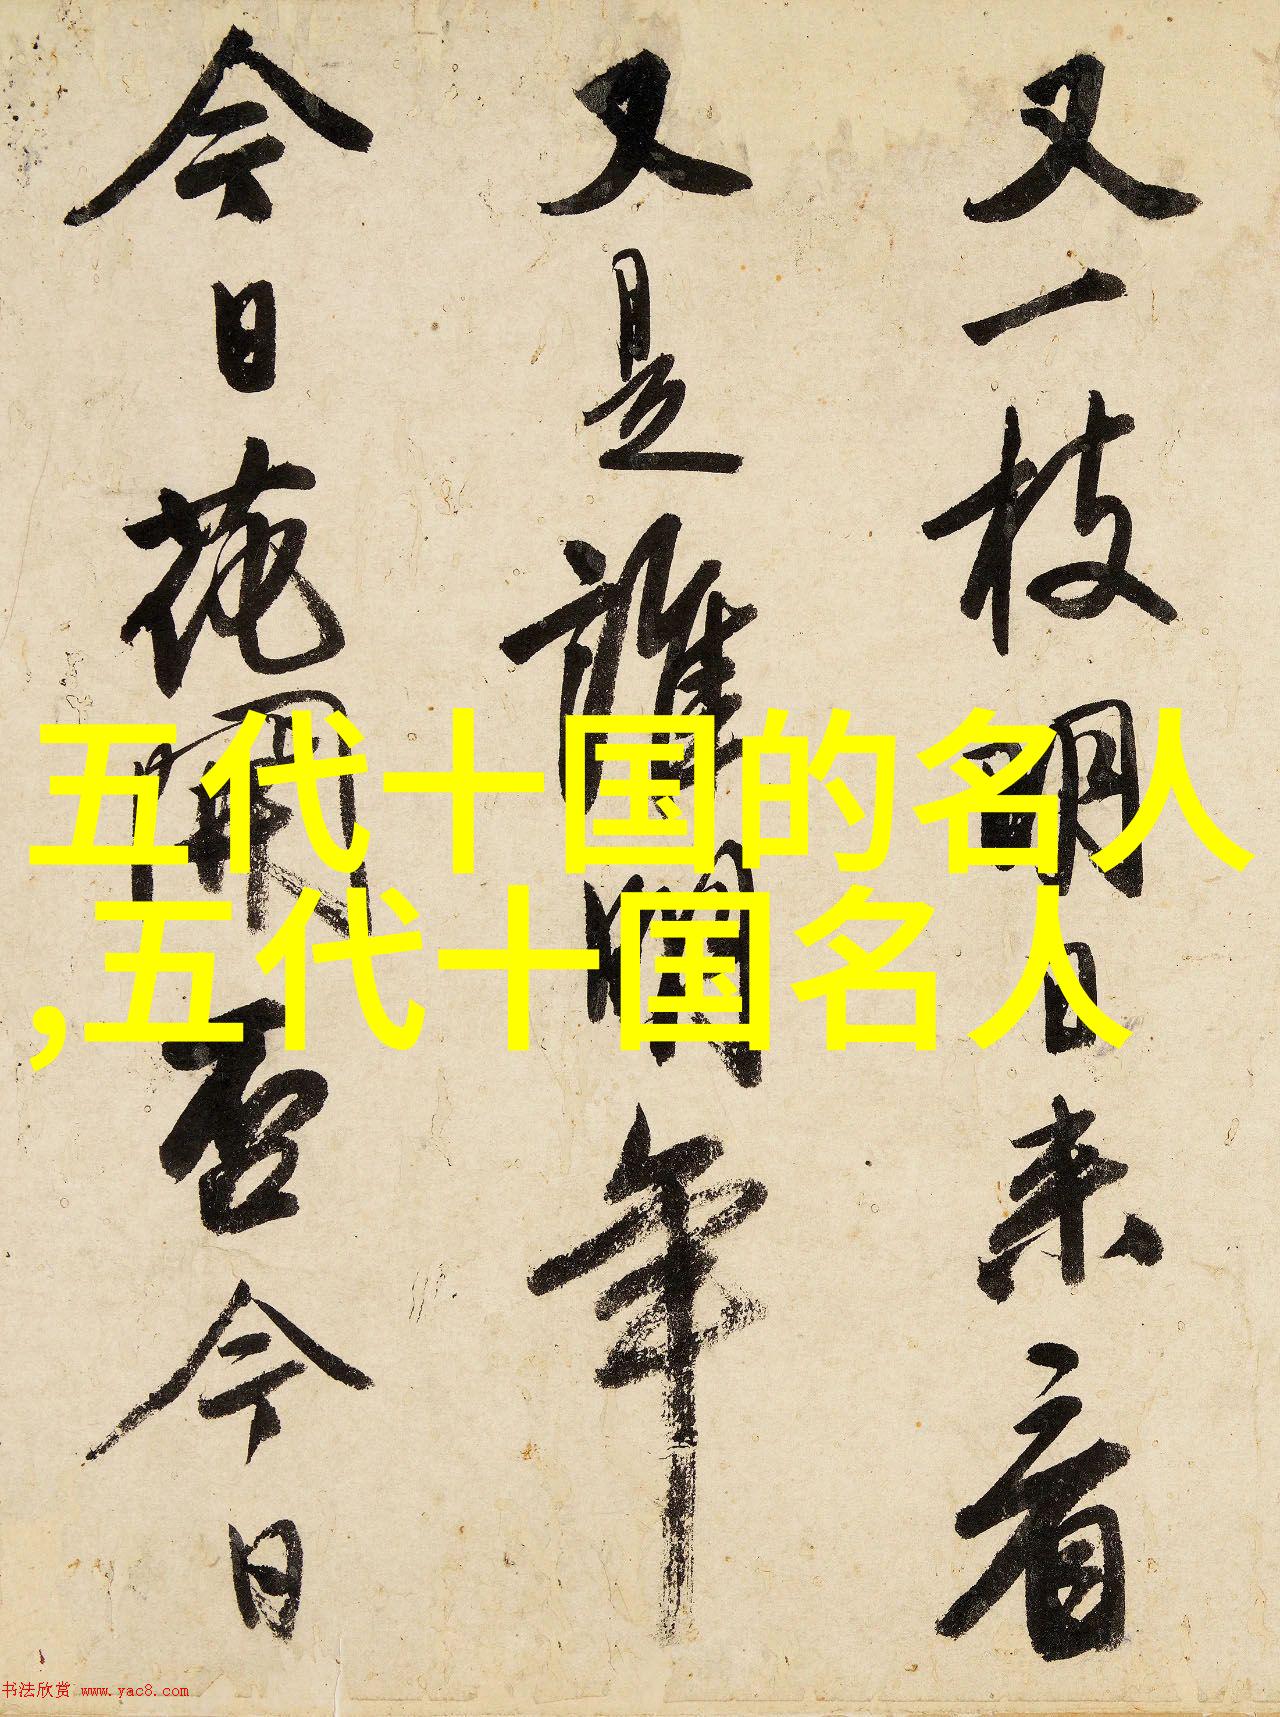 又一枝明日来看
又是誰明年
今日花開否今日
五代十国的名人
,五代十国名人
书法欣赏 www.yac8.com